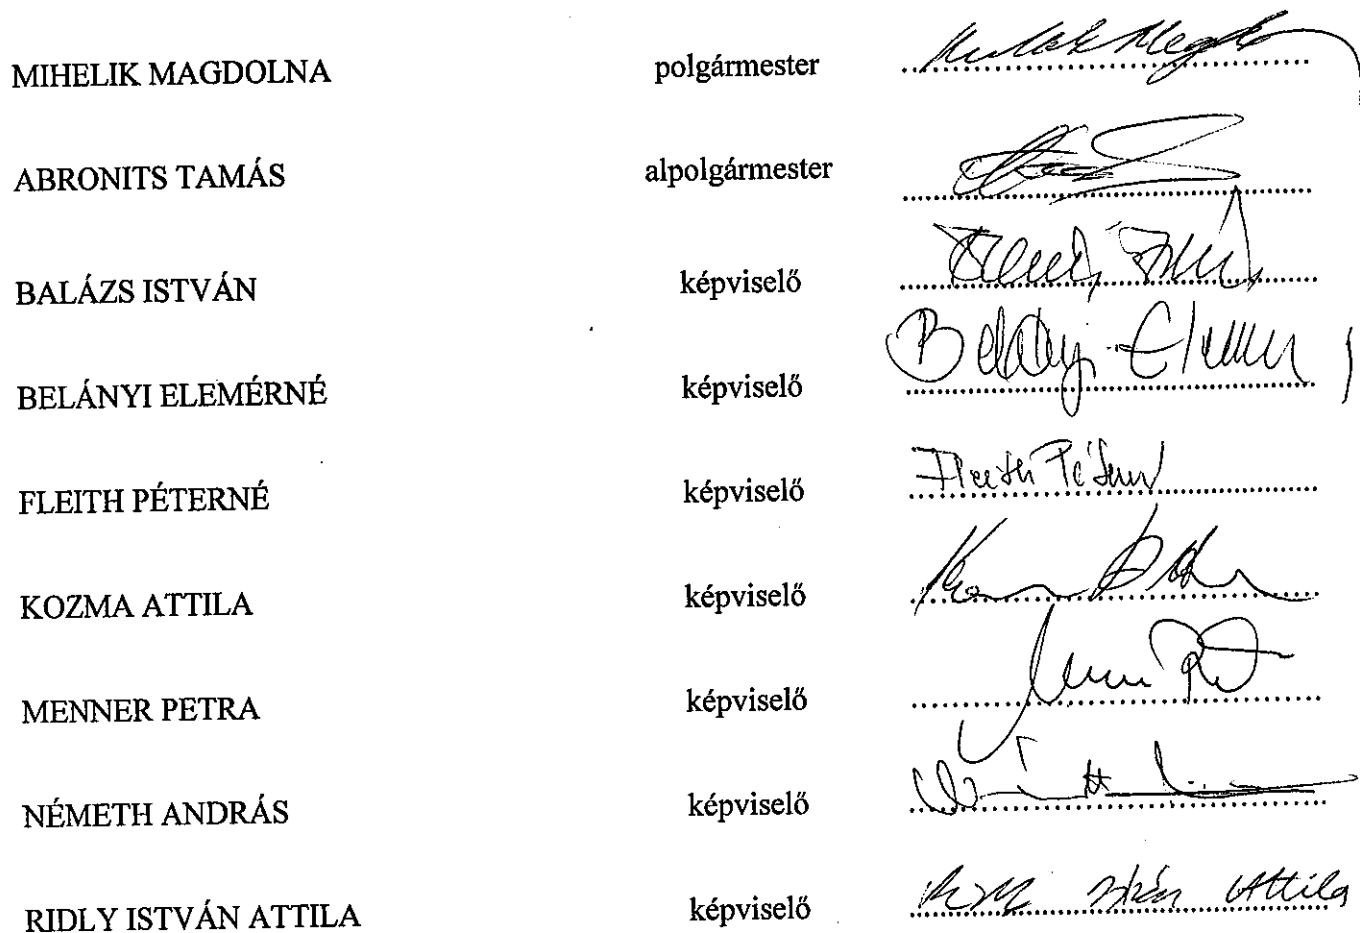 MIHELIK MAGDOLNA polgármester
ABRONITS TAMÁS alpolgármester
BALÁZS ISTVÁN képviselő
BELÁNYI ELEMÉRNÉ képviselő Belányi Elemér
FLEITH PÉTERNÉ képviselő Fleith Péterné
KOZMA ATTILA képviselő
MENNER PETRA képviselő
NÉMETH ANDRÁS képviselő
RIDLY ISTVÁN ATTILA képviselő István Attila